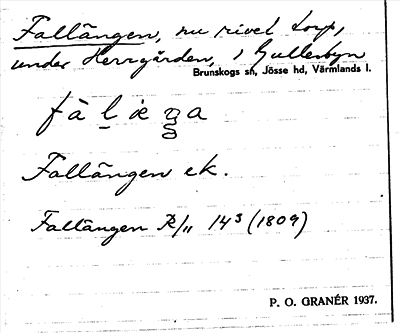 Fallängen, nu rivet torp,
under Herrgården, i Gullerbyn
Brunskogs sn, Jösse hd, Värmlands l.
Fallängen ek.
Fallängen 14³ (1809)
P. O. GRANÉR 1937.